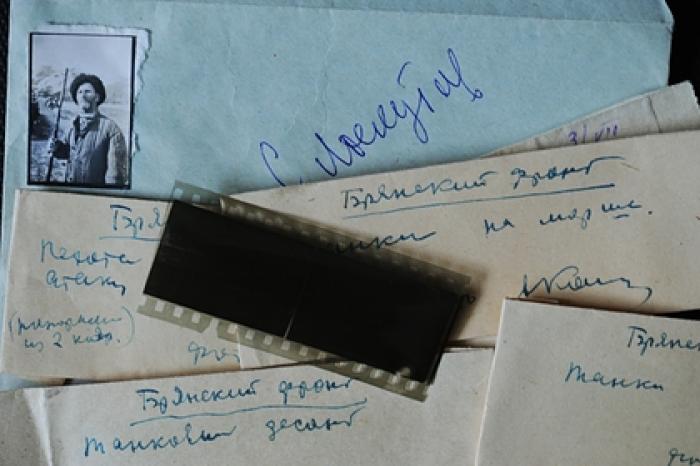 С. Лоскутов
3/VII
Брянский фронт
танки на марше.
Брян
Пехота
атаки
из 2 кадр.
Брянский фронт
танковый десант
Брянс
танки